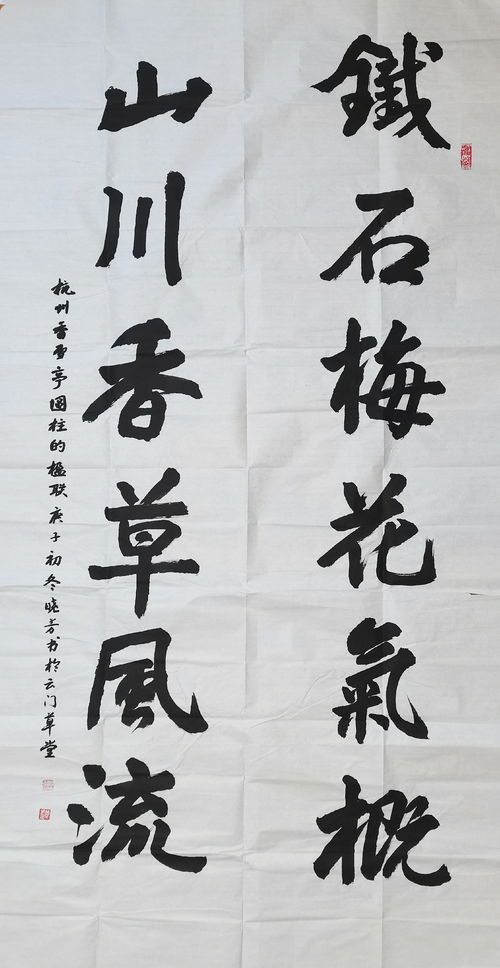 鐵石梅花氣概
山川香草風流
杭州香雪亭圆柱的楹联庚子初冬晓芳书於云门草堂